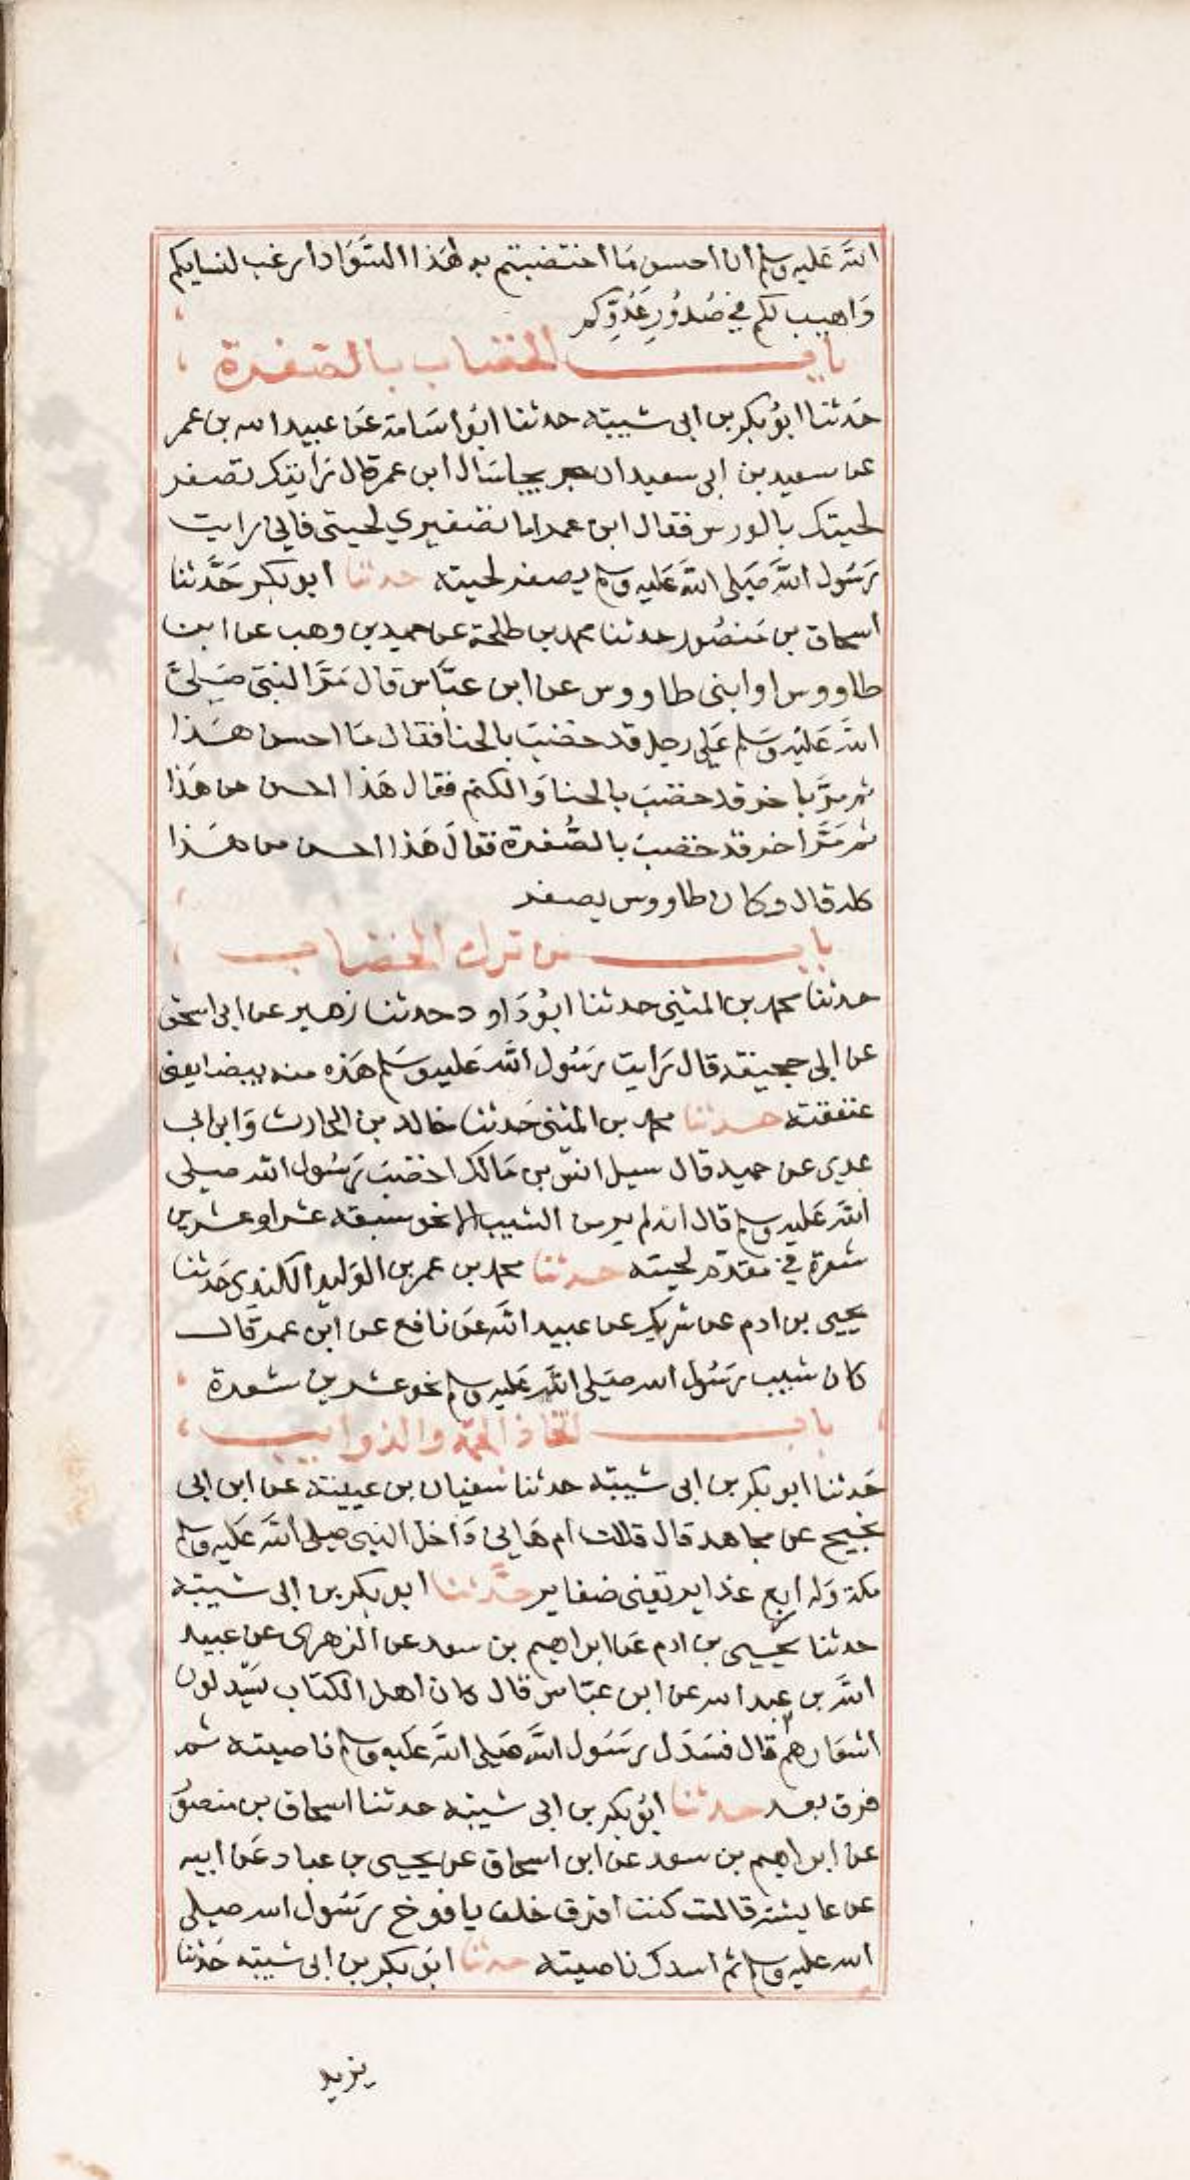 الله عليه وسلم ان احسن ما اختضبتم به لهذا السواد ارغب لنسايكم
واهيب لكم في صدور عدوكم
باب الخضاب بالصفرة
حدثنا ابو بكر بن ابى شيبة حدثنا ابو اسامة عن عبيد الله بن عمر
عن سعيد بن ابى سعيد ان جريجا سال ابن عمر قال رايتك تصفر
لحيتك بالورس فقال ابن عمر اما تصفيري لحيتى فانى رايت
رسول الله صلى الله عليه وسلم يصفر لحيته حدثنا ابو بكر حدثنا
اسحاق بن منصور حدثنا محمد بن طلحة عن حميد بن وهب عن ابن
طاووس او ابنى طاووس عن ابن عباس قال مر النبي صلى
الله عليه وسلم على رجل قد خضب بالحنا فقال ما احسن هذا
ثم مر باخر قد خضب بالحنا والكتم فقال هذا احسن من هذا
ثم مر اخر قد خضب بالصفرة فقال هذا احسن من هذا
كله قال وكان طاووس يصفر
باب من ترك الخضاب
حدثنا محمد بن المثنى حدثنا ابو داود حدثنا زهير عن ابى اسحق
عن ابى جحيفة قال رايت رسول الله عليه وسلم هذه منه بيضا يعنى
عنفقته حدثنا محمد بن المثنى حدثنا خالد بن الحارث وابن ابى
عدى عن حميد قال سيل انس بن مالك اخضب رسول الله صلى
الله عليه وسلم قال انه لم ير من الشيب الا نحو سبعة عشر او عشرين
شعرة في مقدم لحيته حدثنا محمد بن عمر بن الوليد الكندى حدثنا
يحيى بن ادم عن شريك عن عبيد الله عن نافع عن ابن عمر قال
كان شيب رسول الله صلى الله عليه وسلم نحو عشرين شعرة
باب اتخاذ الجمة والذوايب
حدثنا ابو بكر بن ابى شيبة حدثنا سفيان بن عيينة عن ابن ابى
نجيح عن مجاهد قال قالت ام هانى دخل النبى صلى الله عليه وسلم
مكة وله اربع غداير تعنى ضفاير حدثنا ابو بكر بن ابى شيبة
حدثنا يحيى بن ادم عن ابراهيم بن سعد عن الزهرى عن عبيد
الله بن عبد الله عن ابن عباس قال كان اهل الكتاب يسدلون
اشعارهم قال فسدل رسول الله صلى الله عليه وسلم ناصيته ثم
فرق بعد حدثنا ابو بكر بن ابى شيبة حدثنا اسحاق بن منصور
عن ابراهيم بن سعد عن ابن اسحاق عن يحيى بن عباد عن ابيه
عن عايشة قالت كنت افرق خلف يافوخ رسول الله صلى
الله عليه وسلم ثم اسدل ناصيته حدثنا ابو بكر بن ابى شيبة حدثنا
يزيد